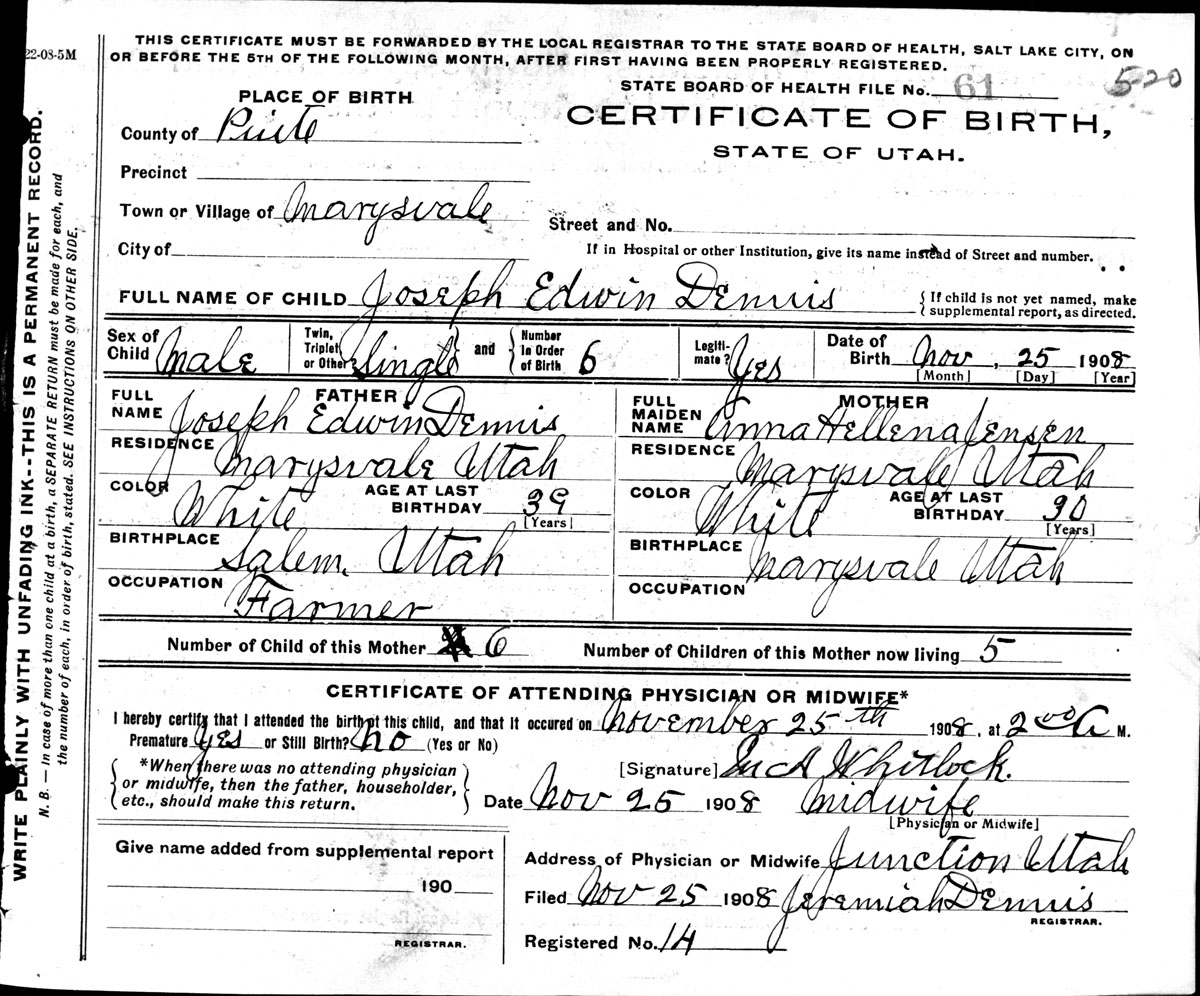 22-08-5M
THIS CERTIFICATE MUST BE FORWARDED BY THE LOCAL REGISTRAR TO THE STATE BOARD OF HEALTH, SALT LAKE CITY, ON
OR BEFORE THE 5TH OF THE FOLLOWING MONTH, AFTER FIRST HAVING BEEN PROPERLY REGISTERED.
STATE BOARD OF HEALTH FILE No. 61 5-20
PLACE OF BIRTH
CERTIFICATE OF BIRTH,
County of Piute
STATE OF UTAH.
Precinct
Town or Village of Marysvale
Street and No.
City of
If in Hospital or other Institution, give its name instead of Street and number.
FULL NAME OF CHILD Joseph Edwin Dennis {If child is not yet named, make
supplemental report, as directed.
Sex of Child Male Twin, Triplet or Other Single and Number In Order of Birth 6 Legiti-mate? Yes Date of Birth Nov, 25 1908
[Month] [Day] [Year]
FATHER
FULL NAME Joseph Edwin Dennis
RESIDENCE Marysvale Utah
COLOR White AGE AT LAST BIRTHDAY 39
[Years]
BIRTHPLACE Salem. Utah
OCCUPATION Farmer
MOTHER
FULL MAIDEN NAME Anna Hellena Jensen
RESIDENCE Marysvale Utah
COLOR White AGE AT LAST BIRTHDAY 30
[Years]
BIRTHPLACE Marysvale Utah
OCCUPATION
Number of Child of this Mother 6 Number of Children of this Mother now living 5
CERTIFICATE OF ATTENDING PHYSICIAN OR MIDWIFE*
I hereby certify that I attended the birth of this child, and that it occured on November 25th 1908, at 2 00 A M.
Premature Yes or Still Birth? No (Yes or No)
*When there was no attending physician
or midwife, then the father, householder,
etc., should make this return.
[Signature] Whitlock.
Date Nov 25 1908 Midwife
[Physician or Midwife]
Give name added from supplemental report
190
REGISTRAR.
Address of Physician or Midwife Junction Utah
Filed Nov 25 1908 Jeremiah Dennis
REGISTRAR.
Registered No. 14
WRITE PLAINLY WITH UNFADING INK--THIS IS A PERMANENT RECORD.
N. B. — In case of more than one child at a birth, a SEPARATE RETURN must be made for each, and
the number of each, in order of birth, stated. SEE INSTRUCTIONS ON OTHER SIDE.